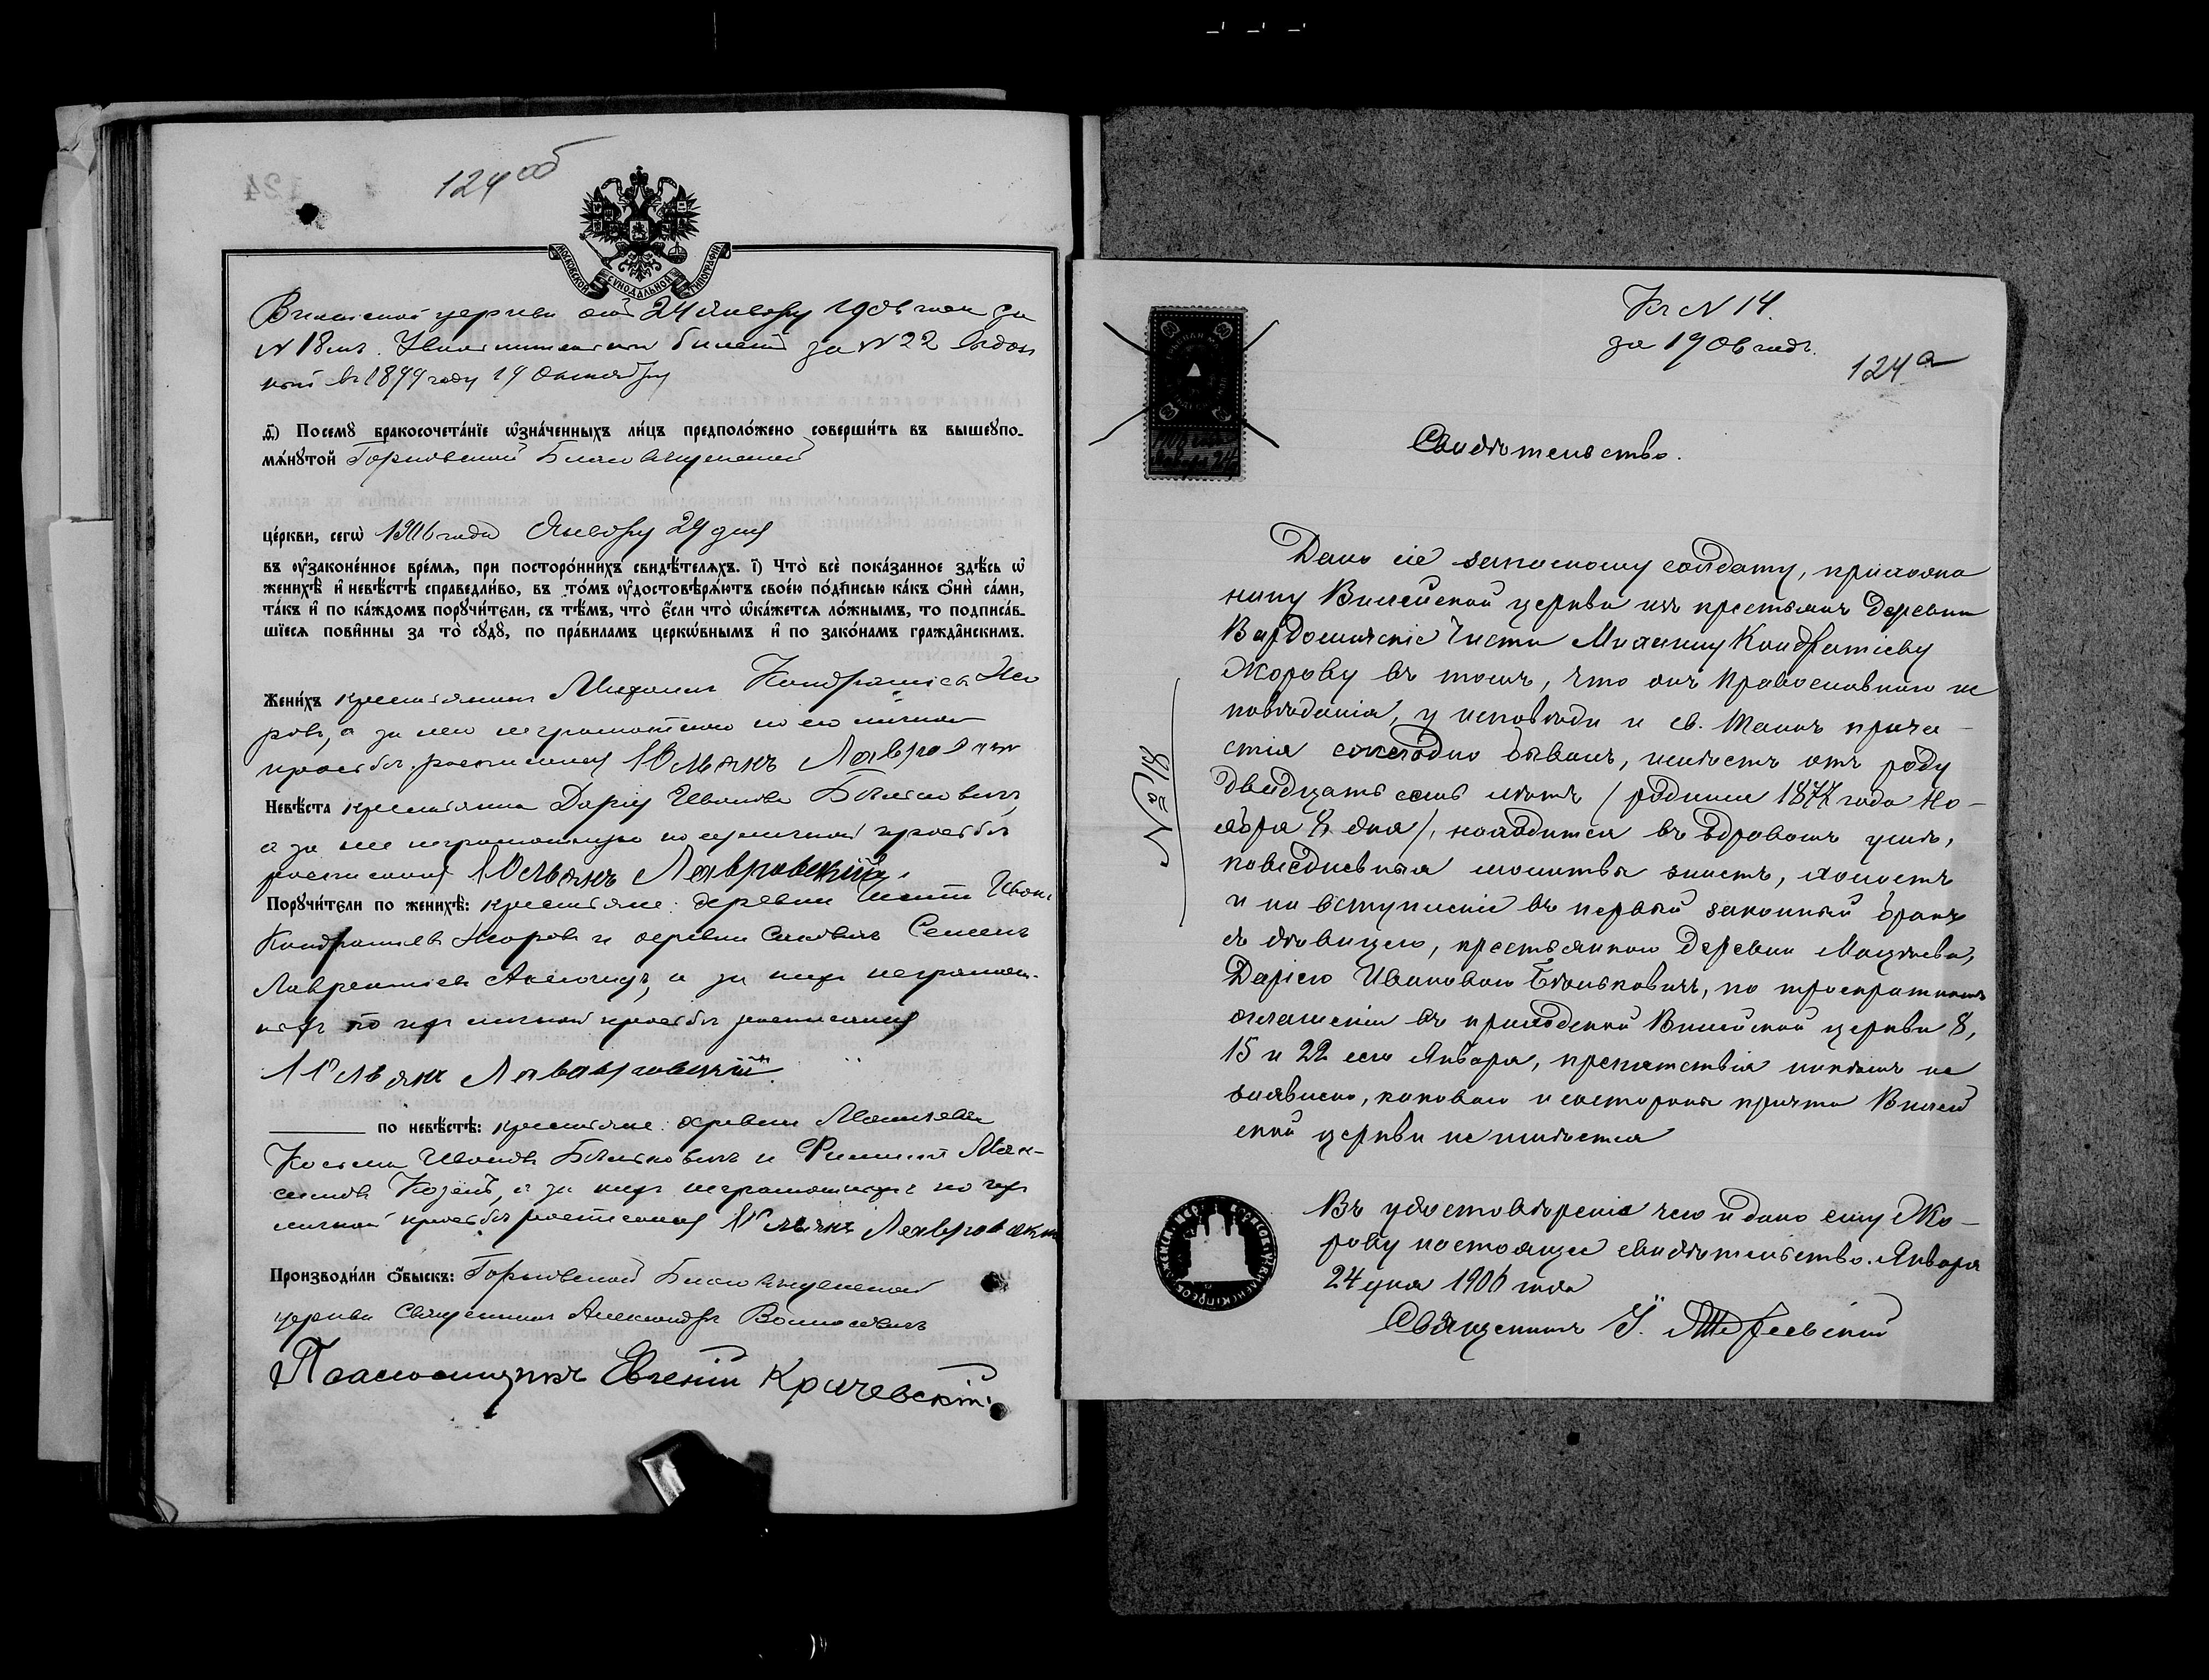 124 об
МОСКОВСКОЙ СУНОДАЛЬНОЙ ТИПОГРАФІИ
церкви отъ 24 Января 1906 года за
N 18мъ. Увольнительный билетъ за N 22 выдан
ный въ 1899 году 19 Октября
д҃) Посемꙋ бракосочета́нїе ѡ҆зна́ченныхъ ли́цъ предполо́жено соверши́ть въ вышеꙋпо-
мѧ́нꙋтой Горковской Благовѣщенской
це́ркви, сегѡ̀ 1906 года Января 29 дня
въ ᲂу҆зако́ненное вре́мѧ, при посторо́ннихъ свидѣ́телѧхъ. і҃) Что̀ всѐ пока́занное здѣ́сь ѡ҆
женихѣ̀ и҆ невѣ́стѣ справедли́во, въ то́мъ ᲂу҆достовѣрѧ́ютъ свое́ю по́дписью ка́къ ѻ҆нѝ са́ми,
та́къ и҆ по ка́ждомъ порꙋчи́тели, съ тѣ́мъ, что̀ є҆́сли что̀ ѡ҆ка́жется ло́жнымъ, то подписа́в-
шїесѧ пови́нны за то̀ сꙋдꙋ̀, по пра́виламъ церкѡ́внымъ и҆ по зако́намъ гражда̑нскимъ.
Жени́хъ крестьянинъ Михаилъ Кондратіевъ Жо
ровъ, а за него неграмотнаго по его личной
просьбѣ росписался Юльянъ
Невѣ́ста крестьянка Дарія Иванова Бѣльковичъ,
а за нее неграмотную по ея личной просьбѣ
росписался Юльянъ Лавровскій.
Порꙋчи́тєли по женихѣ̀: крестьяне: деревни Чисти Иванъ
Кондратіевъ Жоровъ и деревни Семенъ
Лаврентіевъ а за нихъ неграмот-
ныхъ по ихъ личной просьбѣ росписался
Юльянъ
по невѣ́стѣ: крестьяне: деревни Мацкева
Косьма Ивановъ Бѣльковичъ и Филиппъ Мак-
симовъ Козелъ, а за нихъ неграмотныхъ по ихъ
личной просьбѣ росписался Юльянъ
Производи́ли ѻ҆́быскъ: Горковской Благовѣщенской
церкви Священникъ Александръ
Псаломщикъ Евгеній Кричевскій.
Къ N 14.
за 1906 годъ.
124 а
Свидѣтельство.
Дано сіе запасному солдату, прихожа
нину Вилейской церкви изъ крестьянъ деревни
Чисти Михаилу Кондратіеву
Жорову въ томъ, что онъ Православнаго ис
повѣданія, у исповѣди и св. Таинъ прича-
стія ежегодно бывалъ, имѣетъ отъ роду
двадцать семь лѣтъ / родился 1877 года Но-
ября 8 дня /, находится въ здравомъ умѣ,
повседневныя молитвы знаетъ, холостъ
и на вступленіе въ первый законный бракъ
съ дѣвицею, крестьянкою деревни Мацкева,
Даріею Ивановою Бѣльковичъ, по троекратномъ
оглашеніи въ приходской Вилейской церкви 8,
15 и 22 сего Января, препятствія никѣмъ не
заявлено, каковаго и со стороны причта Вилей
ской церкви не имѣется
Въ удостовѣреніе чего и дано ему Жо-
рову настоящее свидѣтельство. Января
24 дня 1906 года
Священникъ І.
№ 18